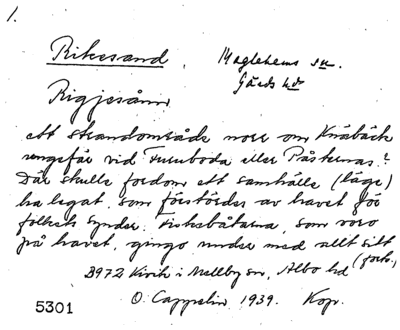 1.
Rikesand. Maglehems sn.
Gärds hd
Rigjesånn
ett strandområde norr om Knäbäck
ungefär vid Furuboda eller Påskernas?
Där skulle fordom ett samhälle (läge)
ha legat, som förstördes av havet för
folkets synder. Fiskebåtarna, som voro
på havet, gingo under med allt sitt
(forts.)
B972 Kivik i Mellby sn, Albo hd
O. Cappelin 1939. Kop.
5301